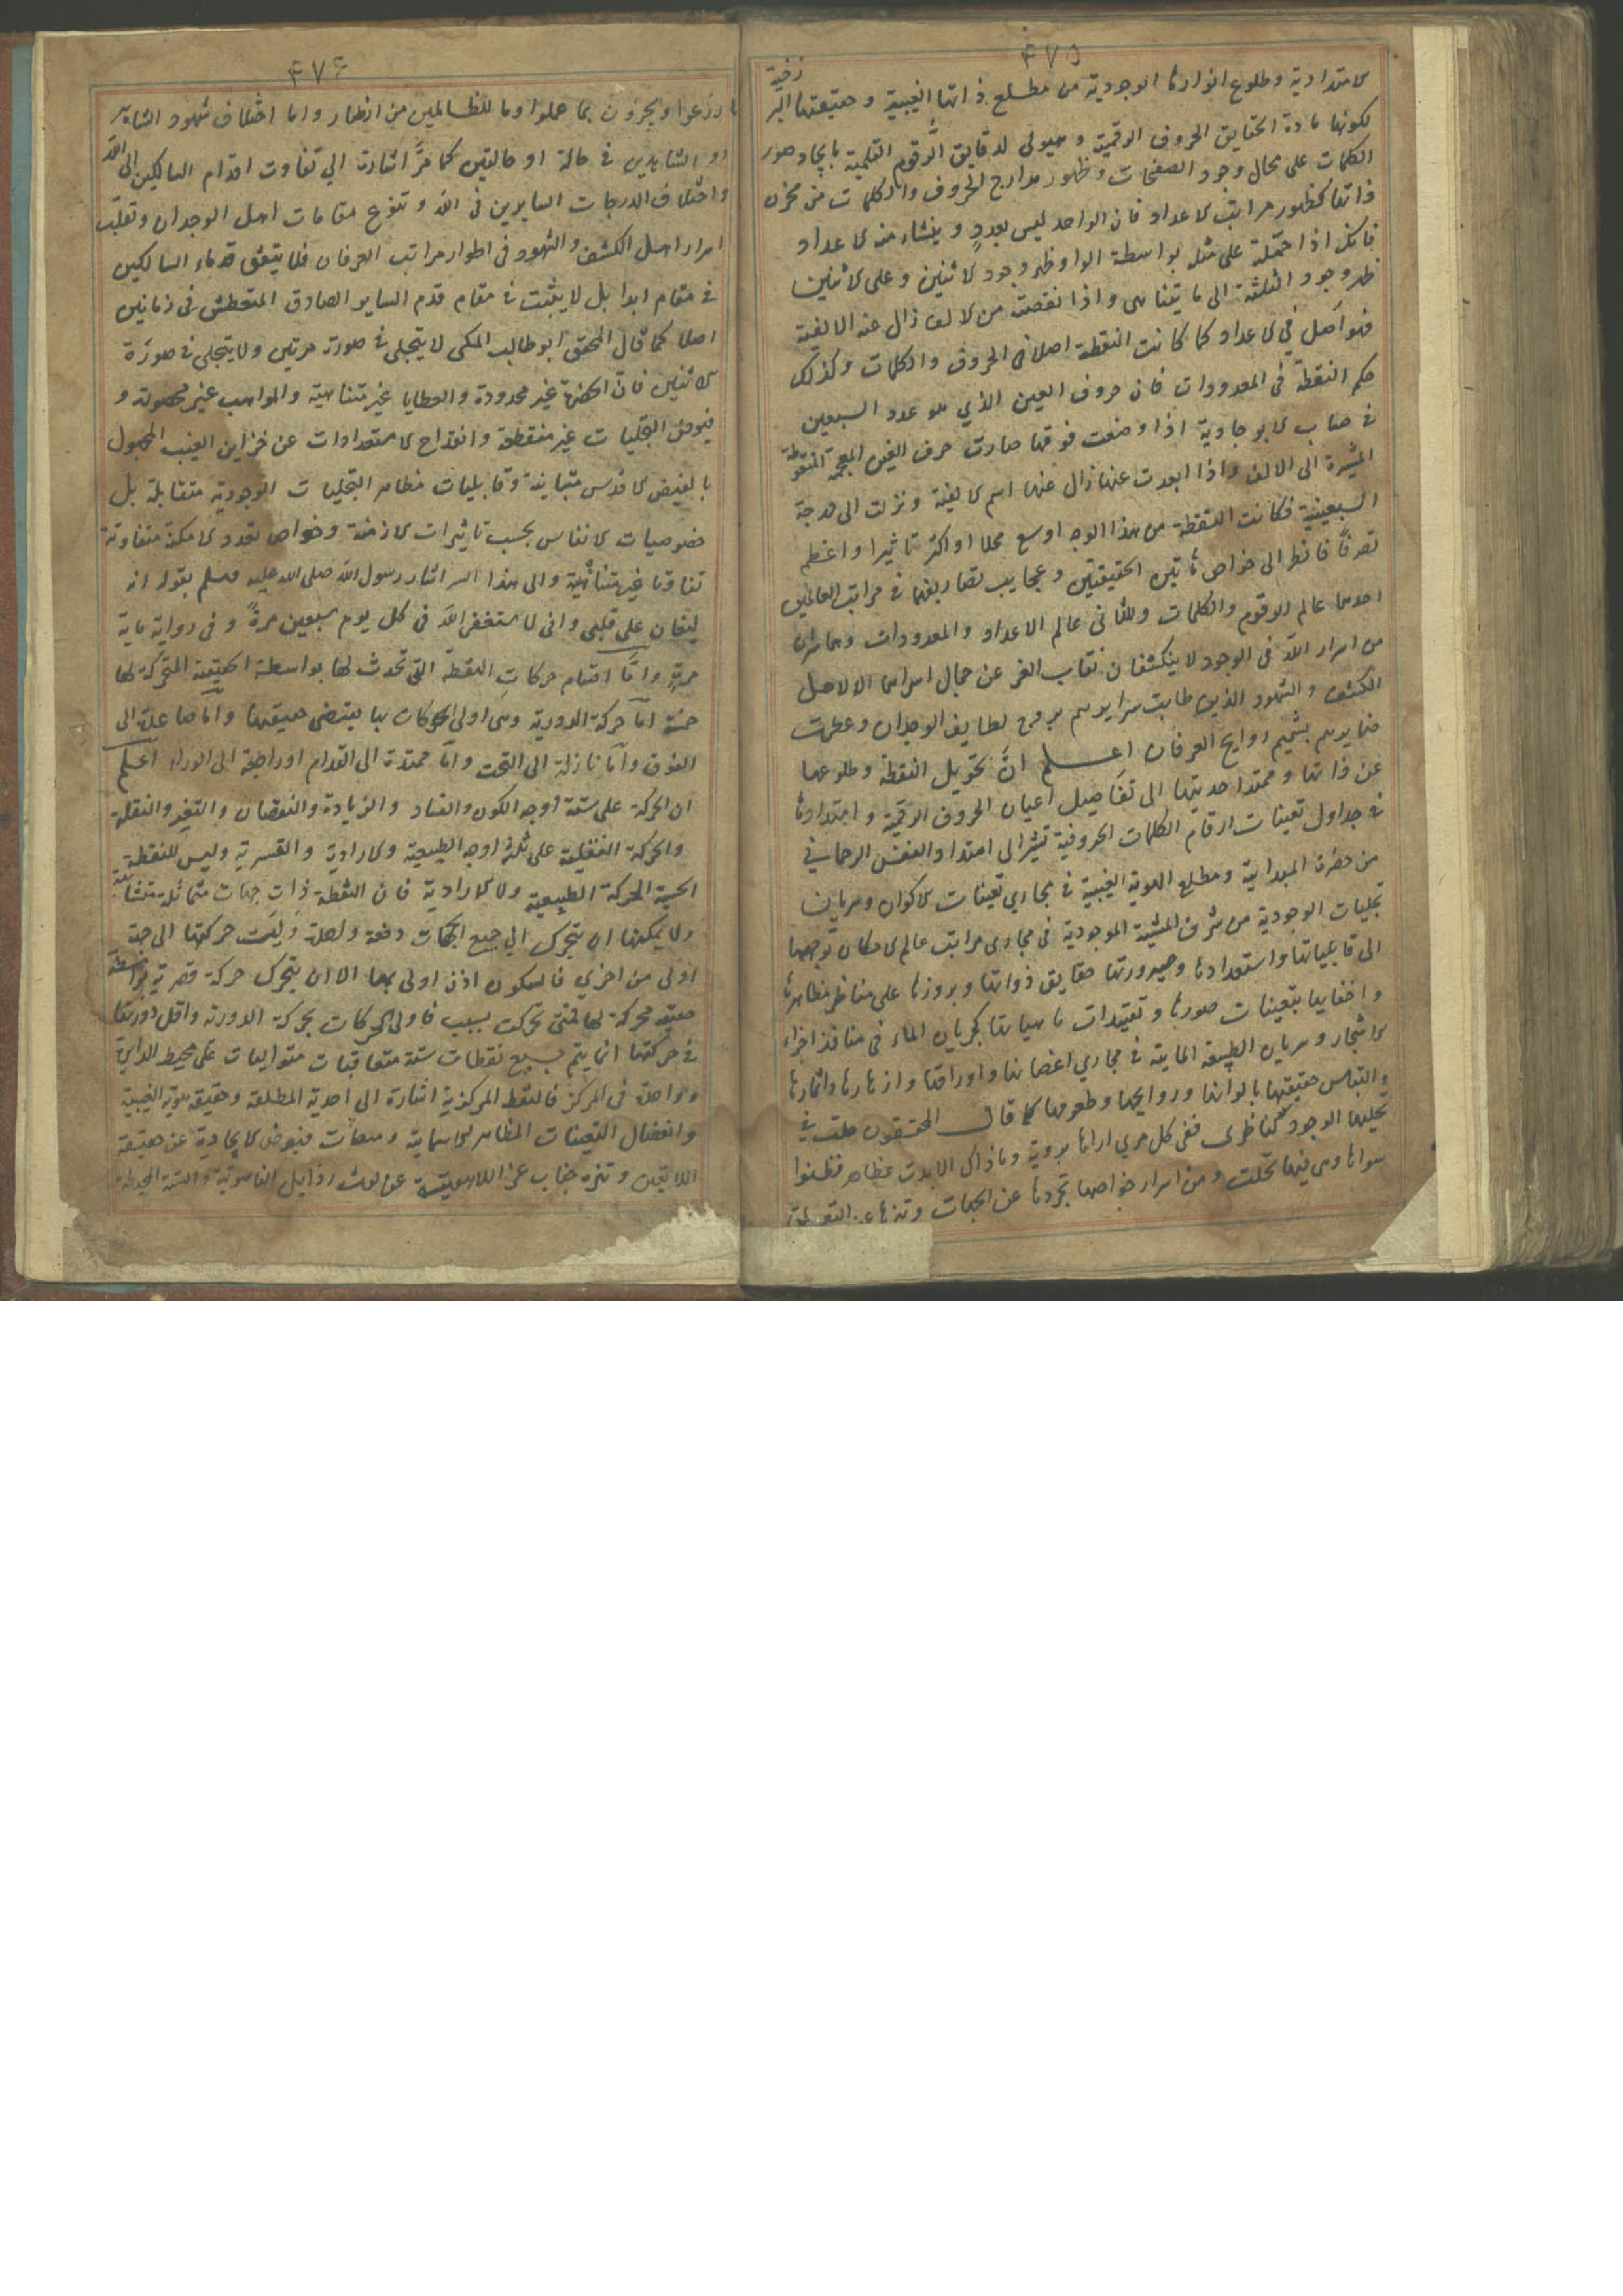 ٤٧٥
الامتدادية وطلوع انوارها الوجودية من مطلع ذاتها الغيبية وحقيقتها البرزخية
لكونها مادة الحقايق الحروف الرقمية وهيولى لدقايق الرقوم القلمية بايجاد صور
الكلمات على محال وجود الصفحات وظهور مدارج الحروف والكلمات من مخزن
ذاتها كظهور مراتب الاعداد فان الواحد ليس بعدد وينشاء منه الاعداد
فانك اذا حملته على مثله بواسطة الواو ظهر وجود الاثنين وعلى الاثنين
ظهر وجود الثلثة الى ما يتناهى واذا نقصته من الالف زال عنه الالفية
فهو اصل في الاعداد كما كانت النقطة اصلا في الحروف والكلمات وكذلك
حكم النقطة في المعدودات فان حروف العين الذي هو عدد السبعين
في حساب الابوجادية اذا وضعت فوقها صارت حرف الغين المعجمة المنقوطة
المشيرة الى الالف واذا ابعدت عنها زال عنها اسم الالفية ونزلت الى درجة
السبعينية فكانت النقطة من هذا الوجه اوسع محلا واكثر تاثيرا واعظم
تصرفا فانظر الى خواص هاتين الحقيقتين وعجايب تصاريفهما في مراتب العالمين
احدهما عالم الرقوم والكلمات والثاني عالم الاعداد والمعدودات وهما سران
من اسرار الله في الوجود لا ينكشفان نقاب العز عن جمال اسرارهما الا لاهل
الكشف والشهود الذين طابت سرايرهم بروح لطايف الوجدان وعطرت
ضمايرهم بشميم روايح العرفان اعلم ان تحويل النقطة وطلوعها
عن ذاتها وممتد احديتها الى تفاصيل اعيان الحروف الرقمية وامتدادها
في جداول تعينات ارقام الكلمات الحروفية تشير الى امتداد النفس الرحماني
من حضرة المبدائية ومطلع الهوية الغيبية في مجاري تعينات الاكوان وسريان
تجليات الوجودية من شرف المشية الموجودية في مجارى مراتب عالم الامكان توجهها
الى قابلياتها واستعدادها وصيرورتها حقايق ذواتها وبروزها على مناظر مظاهرها
واختفايها بتعينات صورها وتقييدات ماهياتها كجريان الماء في منافذ اجزاء
الاشجار وسريان الطبيعة المائية في مجاري اغصانها واوراقها وازهارها واثمارها
والتباس حقيقتها بالوانها وروايحها وطعومها كما قال المحققون
تجليها الوجود لناظرى ففي كل مرئي اراها بروية وما ذاك الا بدت بمظاهر فظنوا
سواها وهي فيها تجلت ومن اسرار خواصها تجردها عن الجهات وتنزها عن
٤٧٦
ما زرعوا ويجزون بما عملوا وما للظالمين من انصار واما اختلاف شهود الشاهد
او الشاهدين في حالة او حالتين كما مر اشارت الي تفاوت اقدام السالكين الى الله
واختلاف الدرجات السايرين في الله وتنوع مقامات اهل الوجدان وتقلب
اسرار اهل الكشف والشهود في اطوار مراتب العرفان فلا يتفق قدماء السالكين
في مقام ابدا بل لا يثبت في مقام قدم الساير الصادق المتعطش في زمانين
اصلا كما قال المحقق ابو طالب المكى لا يتجلى في صورة مرتين ولا يتجلى في صورة
لاثنين فان الحضرة غير محدودة والعطايا غير متناهية والمواهب غير محصورة و
فيوض التجليات غير منقطعة وانقداح الاستعدادات عن خزاين الغيب المجبول
بالفيض الاقدس متباينة وقابليات مظاهر التجليات الوجودية متقابلة بل
خصوصيات الانفاس بحسب تاثيرات الازمنة وخواص تعدد الامكنة متفاوتة
تفاوتا غير متناهية والى هذا السر اشار رسول الله صلى الله عليه وسلم بقوله انه
ليغان على قلبى وانى لاستغفر الله في كل يوم سبعين مرة وفي رواية ماية
مرة واما اقسام حركات النقطة التى تحدث لها بواسطة الحقيقة المتحركة لها
خمسة اما حركة الدورية وهى اولى الحركات بها يقتضى حقيقتها واما صاعدة الى
الفوق واما نازلة الى التحت واما ممتدة الى القدام او راجعة الى الوراء اعلم
ان الحركة على ستة اوجه الكون والفساد والزيادة والنقصان والتغير والنقلة
والحركة النقلية على ثلثة اوجه الطبيعية والارادية والقسرية وليس للنقطة
الحسية الحركة الطبيعية ولا الارادية فان النقطة ذات جهات متماثلة متشابهة
ولا يمكنها ان يتحرك الي جميع الجهات دفعة واحدة وليست حركتها الى جهة
اولى من اخري فالسكون اذن اولى بها الا ان يتحرك حركة قصرية بواسطة
حقيقة محركة لها فمتى تحركت بسبب فاولى الحركات بحركة الدورية واقل دورتها
في حركتها انما يتم بسبع نقطات ستة متعاقبات متواليات على محيط الدايرة
وواحدة في المركز فالنقطة المركزية اشارة الى احدية المطلقة وحقيقة هوية الغيبية
وانفصال التعينات المظاهر الاسمائية ومنعات فيوض الايجادية عن حقيقة
اللاتعين وتنزه جناب عز اللاهوتية عن لوث رذايل الناسوتية والستة المحيطة